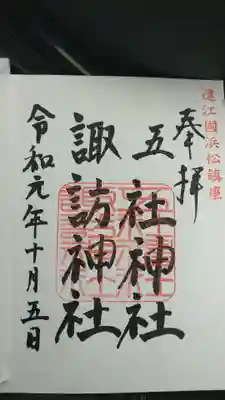 遠江國浜松鎮座
奉拝
五社神社
諏訪神社
令和元年十月五日